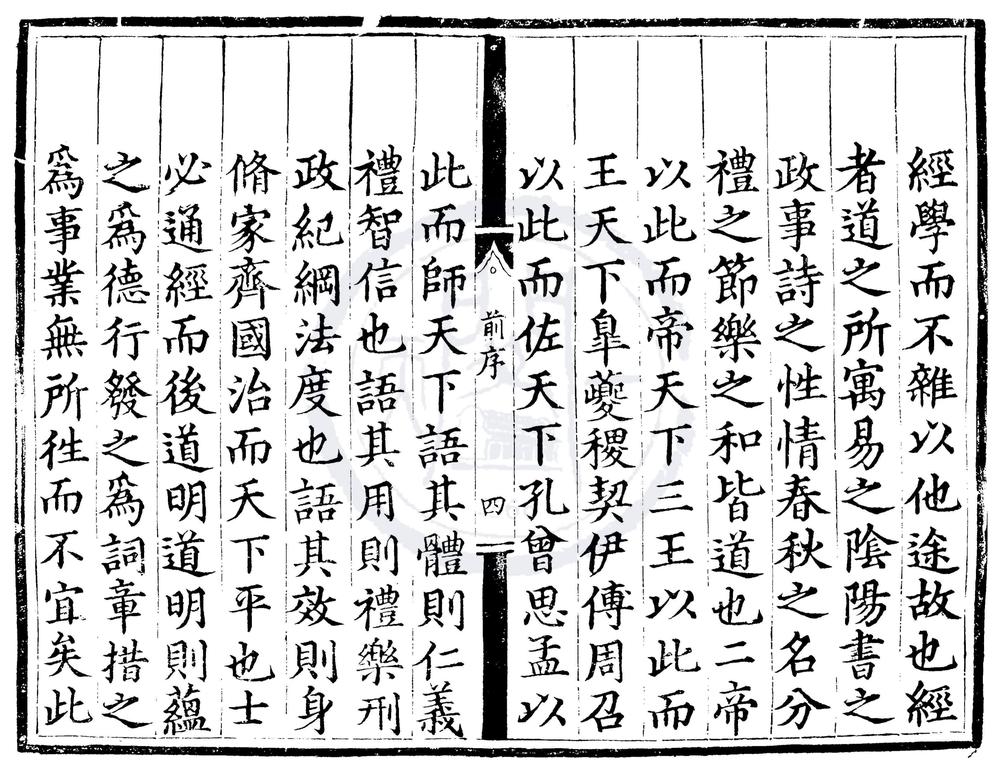 經學而不雜以他途故也經
者道之所寓易之陰陽書之
政事詩之性情春秋之名分
禮之節樂之和皆道也二帝
以此而帝天下三王以此而
王天下臯夔稷契伊傅周召
以此而佐天下孔曾思孟以
前序
四
此而師天下語其體則仁義
禮智信也語其用則禮樂刑
政紀綱法度也語其效則身
脩家齊國治而天下平也士
必通經而後道明道明則蘊
之爲德行發之爲詞章措之
爲事業無所徃而不宜矣此